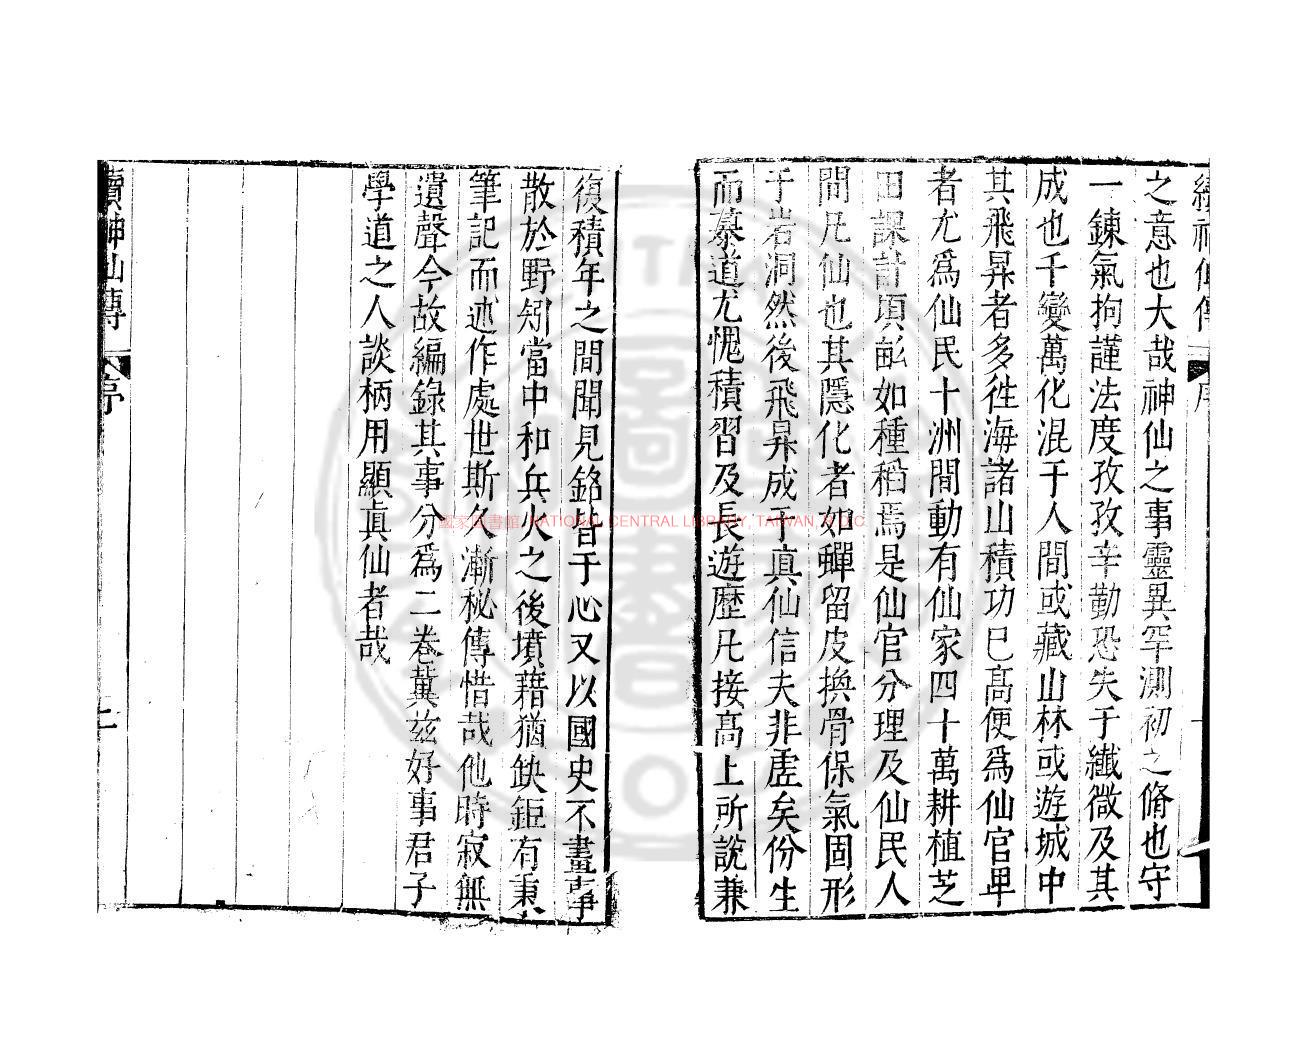 續神仙傳 序
之意也大哉神仙之事靈異罕測初之脩也守
一鍊氣拘謹法度孜孜辛勤恐失于纖微及其
成也千變萬化混于人間或藏山林或遊城中
其飛昇者多徃海諸山積功已高便爲仙官卑
者尤爲仙民十洲間動有仙家四十萬耕植芝
田課計頃畝如種稻焉是仙官分理及仙民人
間凡仙也其隱化者如蟬留皮換骨保氣固形
于岩洞然後飛昇成于真仙信夫非虗矣份生
而慕道尤愧積習及長遊歷凡接高上所說兼
復積年之間聞見銘皆于心又以國史不書事
散於野矧當中和兵火之後墳藉猶缺鉅有秉
筆記而述作處世斯久漸秘傳惜哉他時寂無
遺聲今故編錄其事分爲二卷冀兹好事君子
學道之人談柄用顯真仙者哉
續神仙傳 序 二
國家圖書館, NATIONAL CENTRAL LIBRARY, TAIWAN, R.O.C.